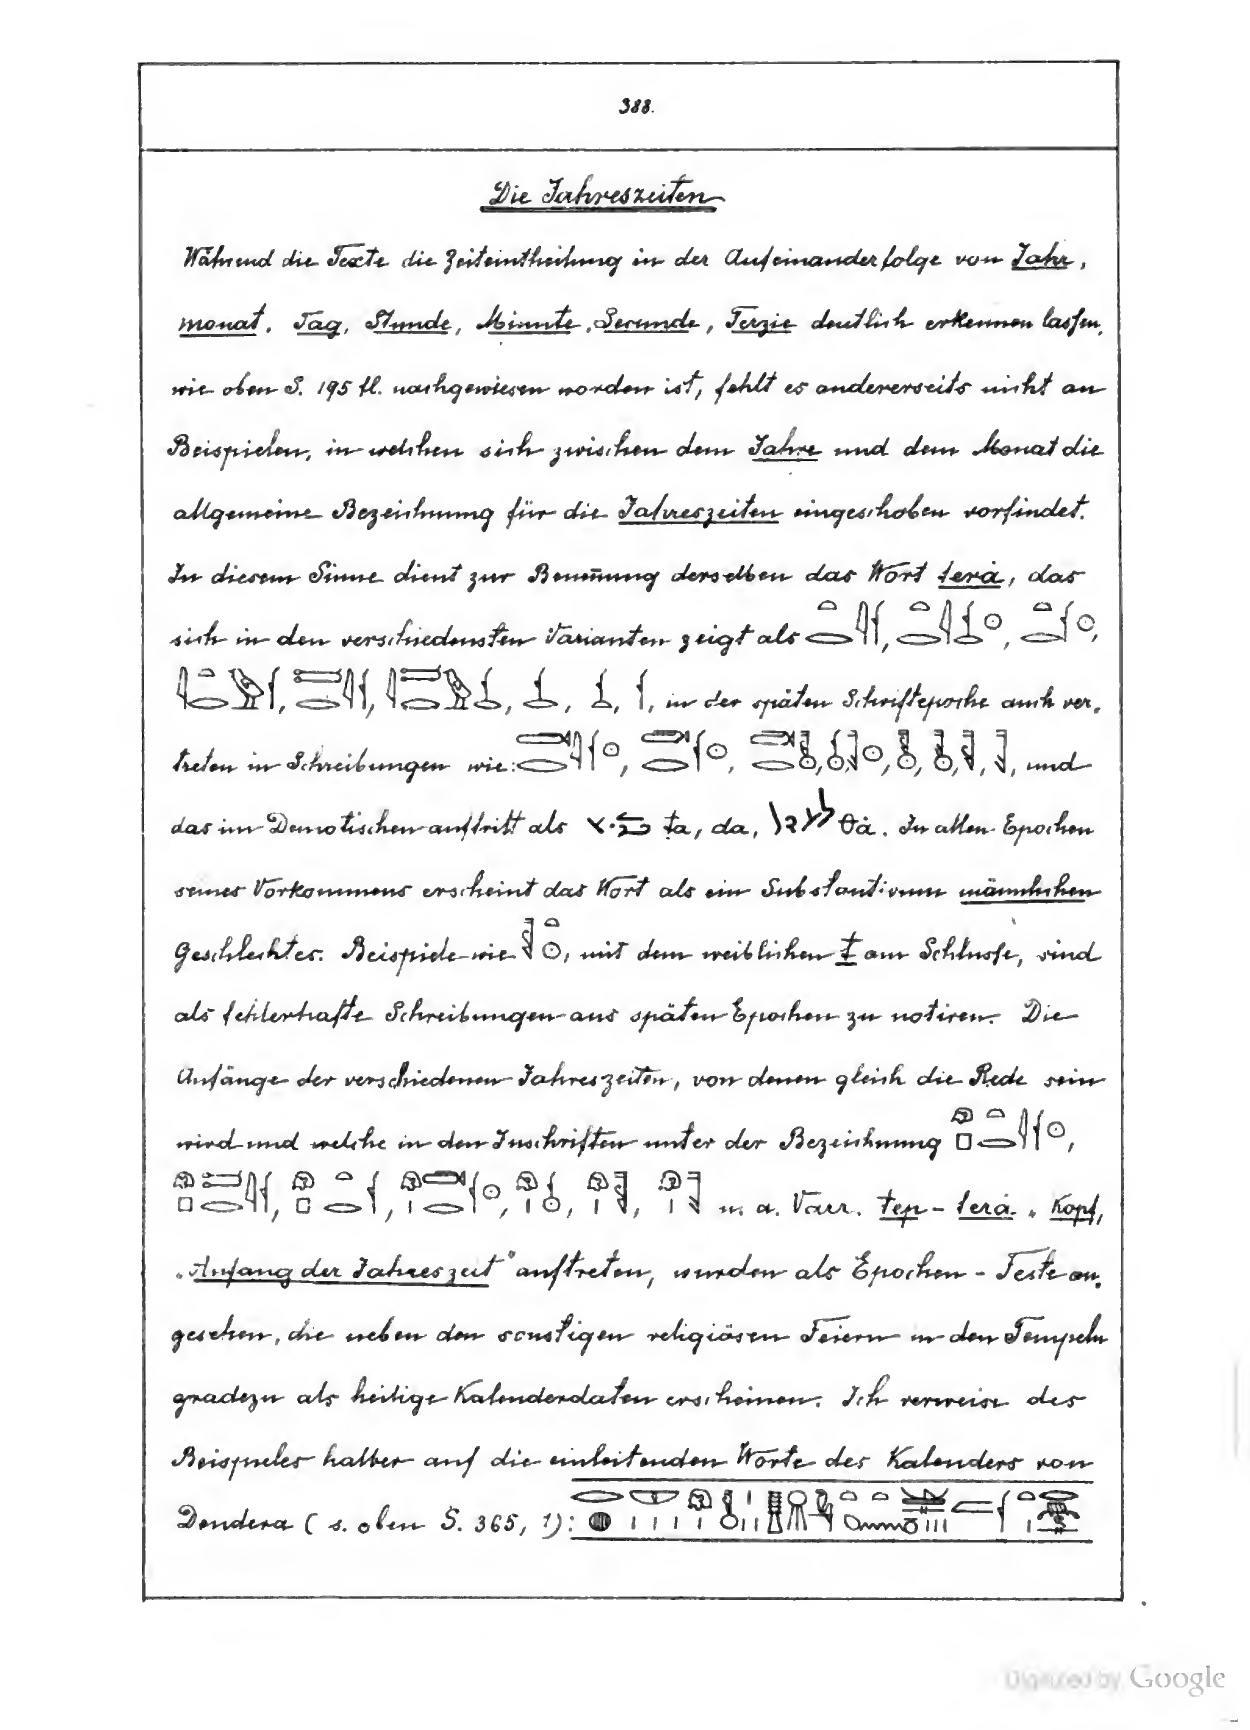 388.
Die Jahreszeiten
Während die Texte die Zeiteintheilung in der Aufeinanderfolge von Jahr,
Monat, Tag, Stunde, Minute, Secunde, Terzie deutlich erkennen lassen,
wie oben S. 195 fl. nachgewiesen worden ist, fehlt es andererseits nicht an
Beispielen, in welchen sich zwischen dem Jahre und dem Monat die
allgemeine Bezeichnung für die Jahreszeiten eingeschoben vorfindet.
In diesem Sinne dient zur Benennung derselben das Wort terȧ, das
sich in den verschiedensten Varianten zeigt als
in der späten Schriftepoche auch ver-
treten in Schreibungen wie: und
das im Demotischen auftritt als ta, da, θȧ. In allen Epochen
seines Vorkommens erscheint das Wort als ein Substantivum männlichen
Geschlechtes. Beispiele wie , mit dem weiblichen t am Schlusse, sind
als fehlerhafte Schreibungen aus späten Epochen zu notiren. Die
Anfänge der verschiedenen Jahreszeiten, von denen gleich die Rede sein
wird und welche in den Inschriften unter der Bezeichnung
u. a. Varr. tep-terȧ „Kopf,
„Anfang der Jahreszeit" auftreten, wurden als Epochen-Feste an-
gesehen, die neben den sonstigen religiösen Feiern in den Tempeln
gradezu als heilige Kalenderdaten erscheinen. Ich verweise des
Beispieles halber auf die einleitenden Worte des Kalenders von
Dendera (s. oben S. 365, 1):
Digitized by Google